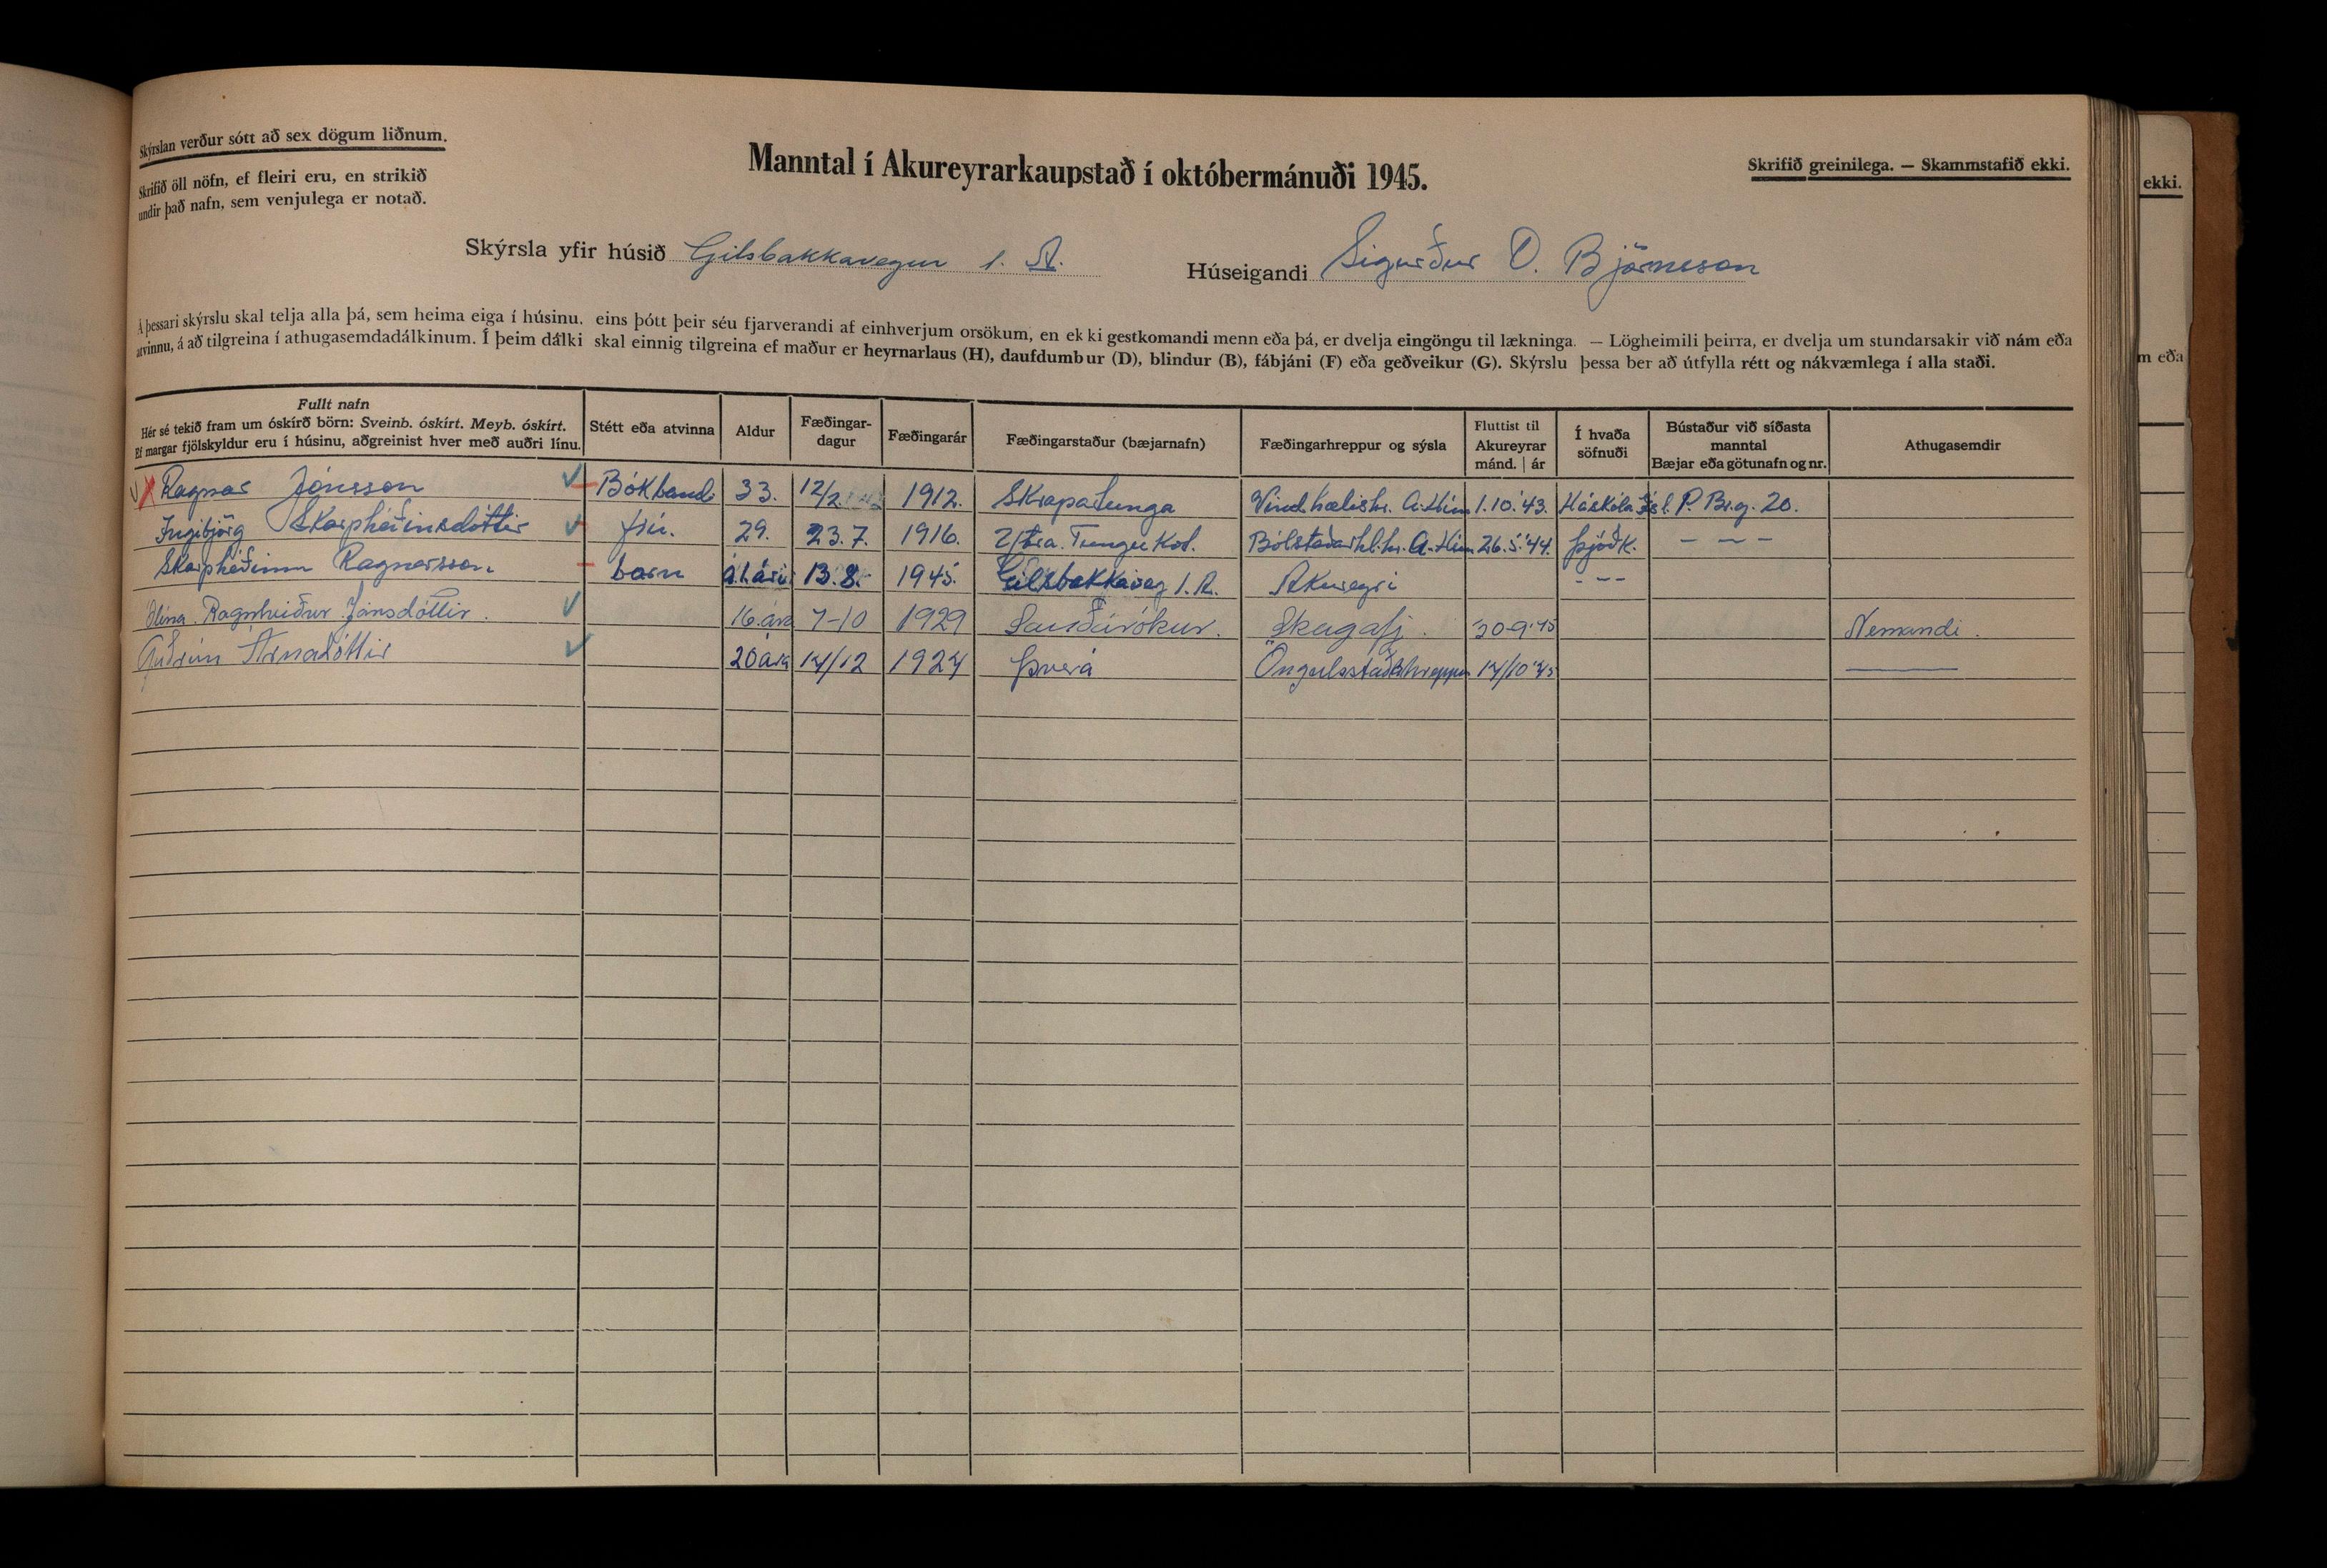 Skýrslan verður sótt að sex dögum liðnum.
Skrifið öll nöfn, ef fleiri eru, en strikið
undir það nafn, sem venjulega er notað.
Manntal í Akureyrarkaupstað í októbermánuði 1945.
Skrifið greinilega. — Skammstafið ekki.
ekki.
Skýrsla yfir húsið Gilsbakkavegur 1. A.
Húseigandi Sigurður O. Björnsson
Á þessari skýrslu skal telja alla þá, sem heima eiga í húsinu, eins þótt þeir séu fjarverandi af einhverjum orsökum, en ekki gestkomandi menn eða þá, er dvelja eingöngu til lækninga. — Lögheimili þeirra, er dvelja um stundarsakir við nám eða
atvinnu, á að tilgreina í athugasemdadálkinum. Í þeim dálki skal einnig tilgreina ef maður er heyrnarlaus (H), daufdumbur (D), blindur (B), fábjáni (F) eða geðveikur (G). Skýrslu þessa ber að útfylla rétt og nákvæmlega í alla staði.
m eða
Fullt nafn
Hér sé tekið fram um óskírð börn: Sveinb. óskírt. Meyb. óskírt.
Ef margar fjölskyldur eru í húsinu, aðgreinist hver með auðri línu.
Stétt eða atvinna
Aldur
Fæðingar-
dagur
Fæðingarár
Fæðingarstaður (bæjarnafn)
Fæðingarhreppur og sýsla
Fluttist til
Akureyrar
mánd. | ár
Í hvaða
söfnuði
Bústaður við síðasta
manntal
Bæjar eða götunafn og nr.
Athugasemdir
Ragnar Jónsson Bókband 33. 12/2 1912. Skrapatunga Vindhælishr. A.Hún 1.10.'43. Háskóla Ísl. P. Br.g. 20.
Ingibjörg Skarphéðinsdóttir frú. 29. 23.7. 1916. Ytra. Tungu Kot. Bólstaðarhl.hr. A.Hún 26.5.'44. Þjóðk. — ~ —
Skarphéðinn Ragnarsson barn á 1. ári 13.8. 1945. Gilsbakkaveg 1. A. Akureyri - - -
Ólína Ragnheiður Jónsdóttir. 16. ára 7-10 1929 Sauðárókur. Skagafj. 30-9-'45 Nemandi.
Guðrún Árnadóttir 20 ára 14/12 1924 Þverá Öngulsstaðahreppur 14/10 '45 —